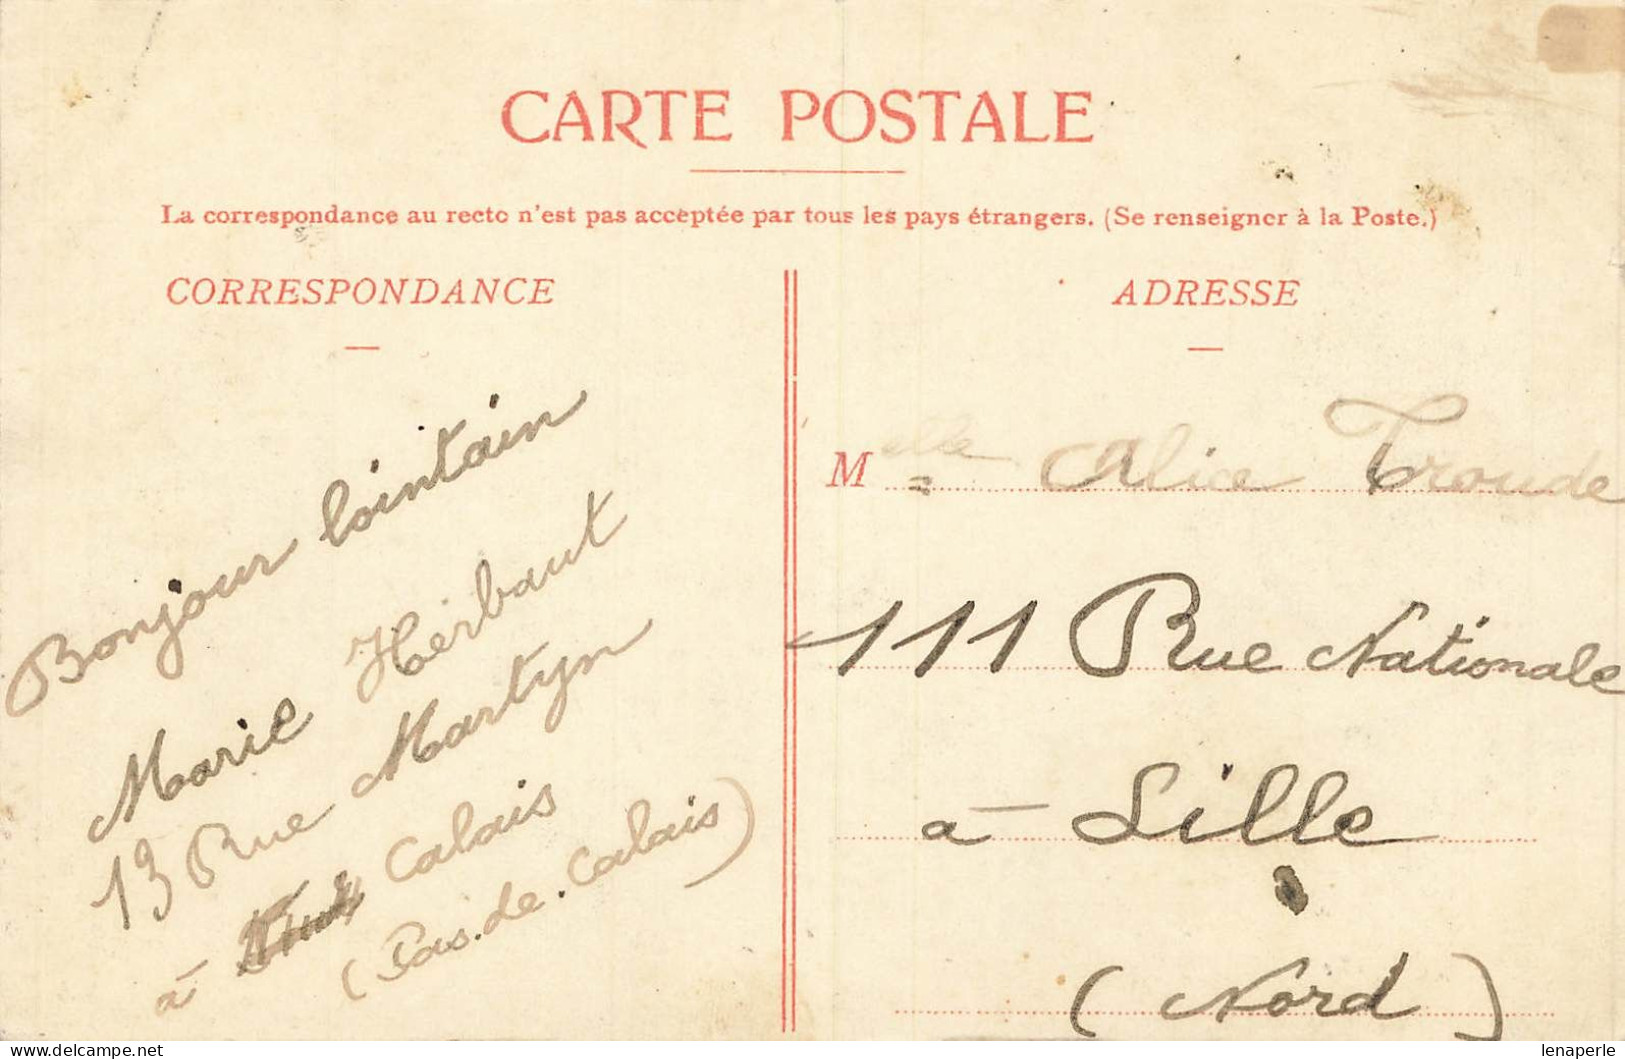 CARTE POSTALE
La correspondance au recto n'est pas acceptée par tous les pays étrangers. (Se renseigner à la Poste.)
CORRESPONDANCE
Bonjour lointain
Marie Herbaut
13 Rue Martyn
à Calais
(Pas.de.Calais)
ADRESSE
Melle Alice Troude
111 Rue Nationale
à Lille
(Nord)
lenaperle